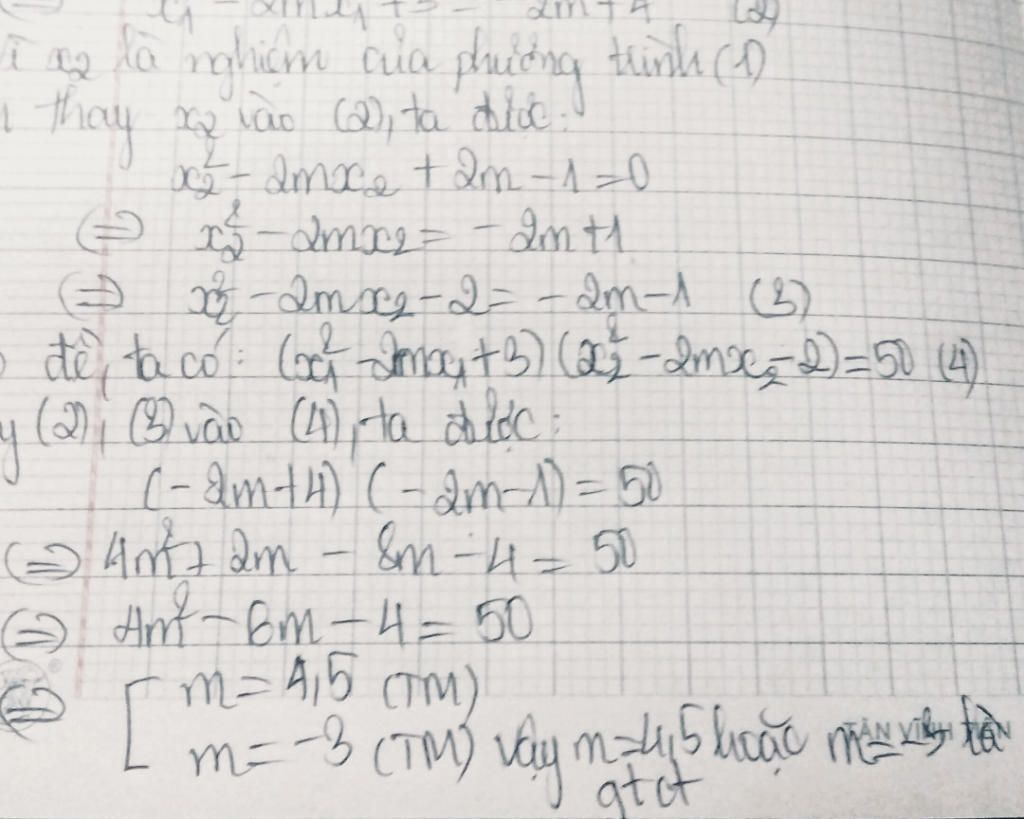 x₁² - 2mx₁ + 3 = -2m+4 (2)
Vì x₂ là nghiệm của phương trình (1)
thay x₂ vào (2), ta được:
x₂² - 2mx₂ + 2m - 1 = 0
⇔ x₂² - 2mx₂ = -2m+1
⇔ x₂² - 2mx₂ - 2 = -2m-1 (3)
đề, ta có: (x₁² - 2mx₁ + 3)(x₂² - 2mx₂ - 2) = 50 (4)
(2), (3) vào (4), ta được:
(-2m+4) (-2m-1) = 50
⇔ 4m² + 2m - 8m - 4 = 50
⇔ 4m² - 6m - 4 = 50
⇔ [ m = 4,5 (TM)
m = -3 (TM) vậy m=4,5 hoặc m=-3 là
gtct